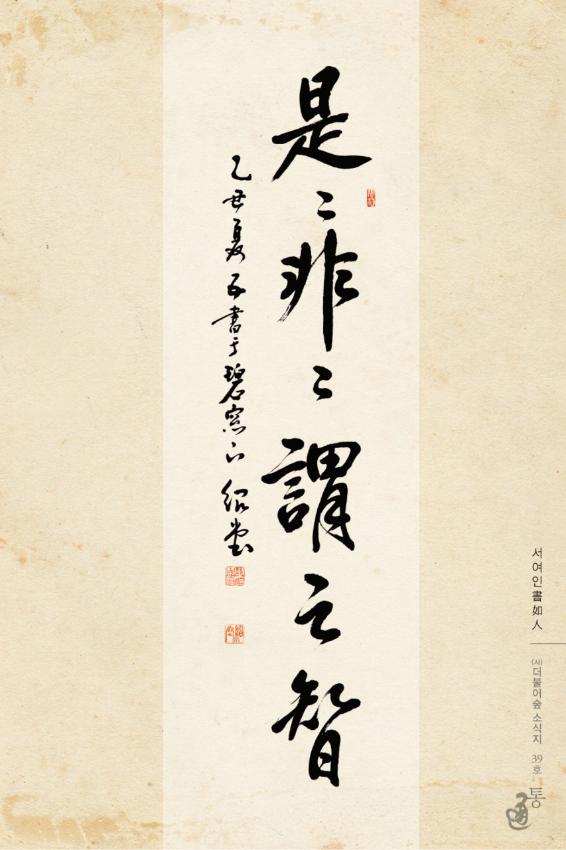 是〻非〻謂之智
乙丑夏 至書于碧窓下 紹堂
서여인書如人
(사)더불어숲 소식지 39호
통
通